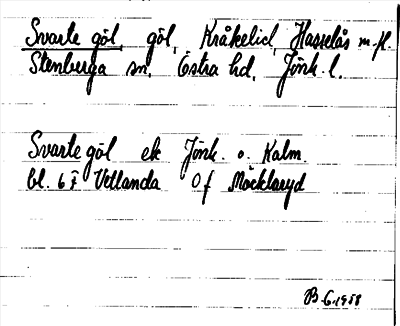 Svarte göl, göl, Kråkelid, Hasselås m. fl.
Stenberga sn, Östra hd, Jönk. l.
Svarte göl ek Jönk. o. Kalm.
bl. 6 f Vetlanda Of Möcklaryd
B. G. 1958